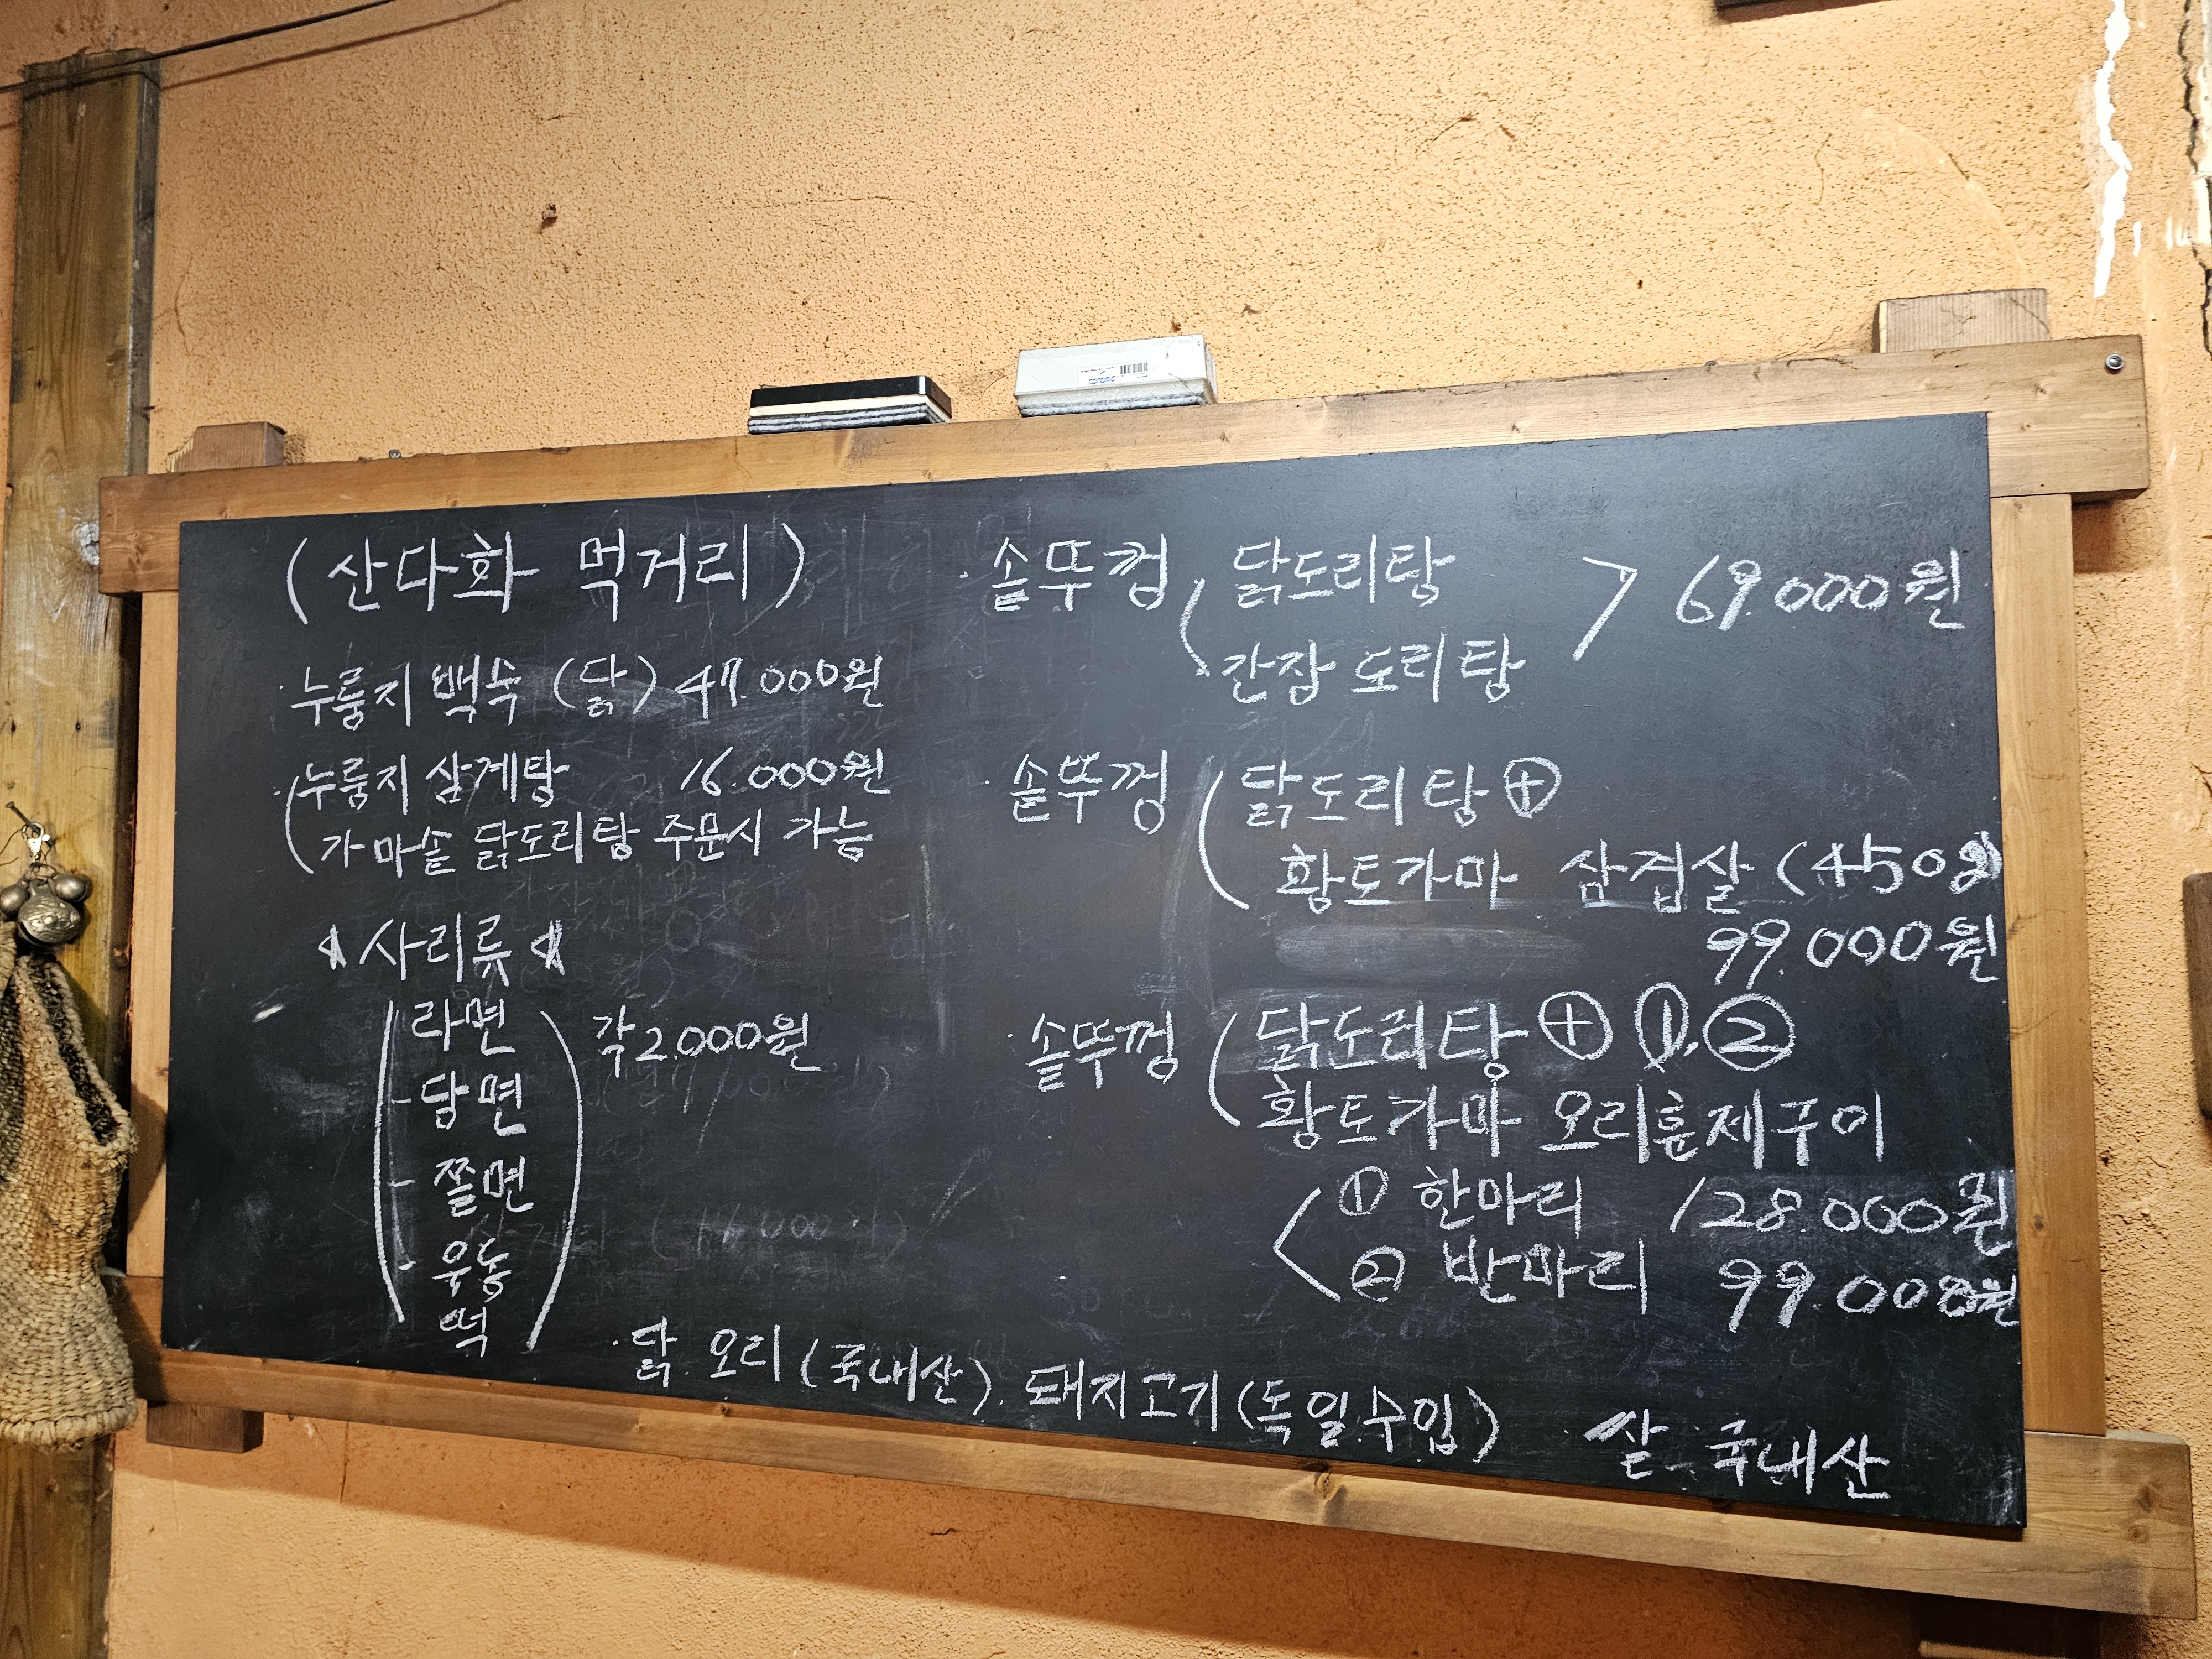 (산다화 먹거리)
· 누룽지 백숙 (닭) 47.000원
· 누룽지 삼계탕 16.000원
가마솥 닭도리탕 주문시 가능
사리류
라면
- 당면
- 쫄면
· 우동
떡
각 2.000원
· 솥뚜껑 닭도리탕
간장 도리탕
> 69.000원
· 솥뚜껑 닭도리탕 ⊕
황토가마 삼겹살 (450g)
99.000원
· 솥뚜껑 닭도리탕 ⊕ ①, ②
황토가마 오리훈제구이
① 한마리 128.000원
② 반마리 99.000원
· 닭. 오리 (국내산). 돼지고기 (독일.수입) 쌀. 국내산